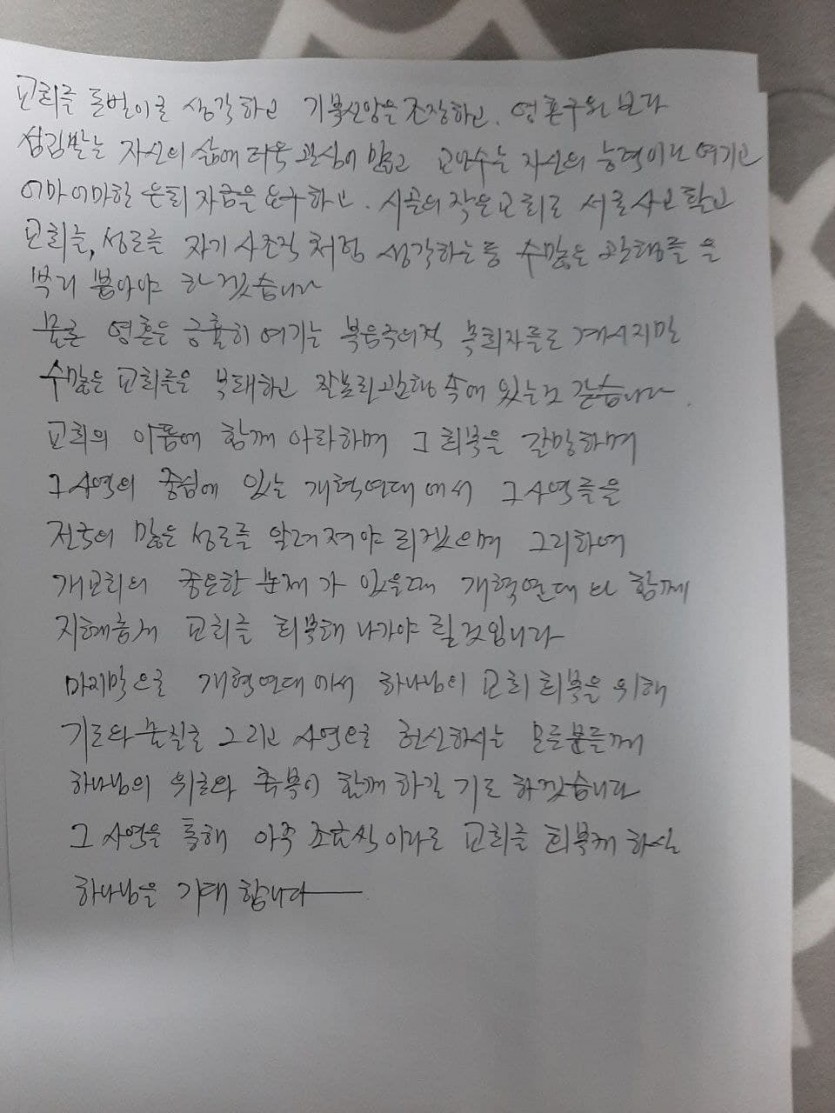 교회를 돈벌이로 생각하고 기복신앙을 조장하고. 영혼구원 보다
섬김받는 자신의 삶에 더욱 관심이 많고 교인수는 자신의 능력이라 여기고
어마어마한 은퇴 자금을 요구하고. 시골의 작은교회도 서로 사고 팔고
교회를, 성도를 자기 사조직 처럼 생각하는 등 수많은 관행들을
뿌리 뽑아야 하겠습니다
물론 영혼을 긍휼히 여기는 복음주의적 목회자들도 계시지만
수많은 교회들은 부패하고 잘못된 관행 속에 있는것 같습니다.
교회의 아픔에 함께 아파하며 그 회복을 갈망하며
그 사역의 중심에 있는 개혁연대에서 그 사역들을
전국의 많은 성도들 알려져야 되겠으며 그리하여
개교회의 중요한 문제가 있을때 개혁연대와 함께
지혜롭게 교회를 회복해 나가야 될것입니다
마지막으로 개혁연대에서 하나님의 교회 회복을 위해
기도와 물질로 그리고 사역으로 헌신하시는 모든분들께
하나님의 위로와 축복이 함께 하길 기도 하겠습니다
그 사역을 통해 아주 조금씩이라도 교회를 회복케 하실
하나님을 기대 합니다